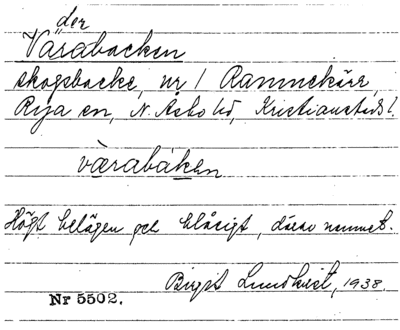 der
Varabacken
skogsbacke, nr 1 Rammekärr,
Rya sn, N. Åsbo hd, Kristianstads l.
vàrabáken
Högt belägen och blåsigt, därav namnet.
Birgit Lundkvist, 1938.
Nr 5502.